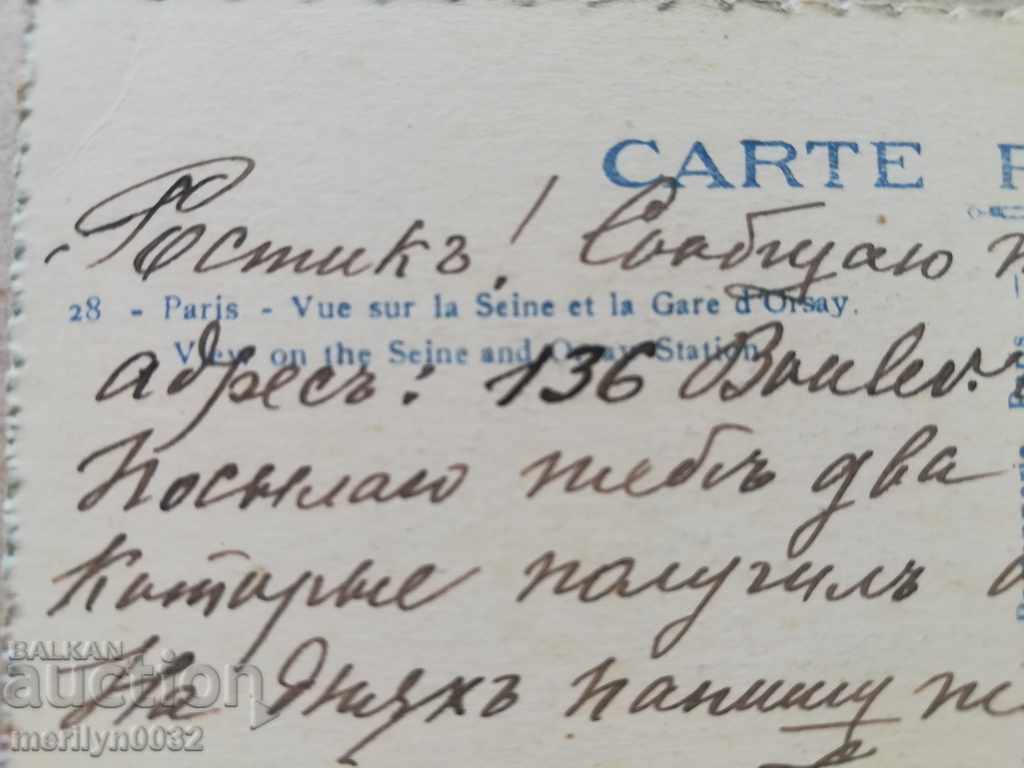 CARTE
Ростикъ! Сообщаю
28 - Paris - Vue sur la Seine et la Gare d'Orsay.
View on the Seine and Orsay Station
адресъ: 136 Boulev.
Посылаю тебѣ два
которые получилъ
На дняхъ напишу
BALKAN
auction
merilyn0032